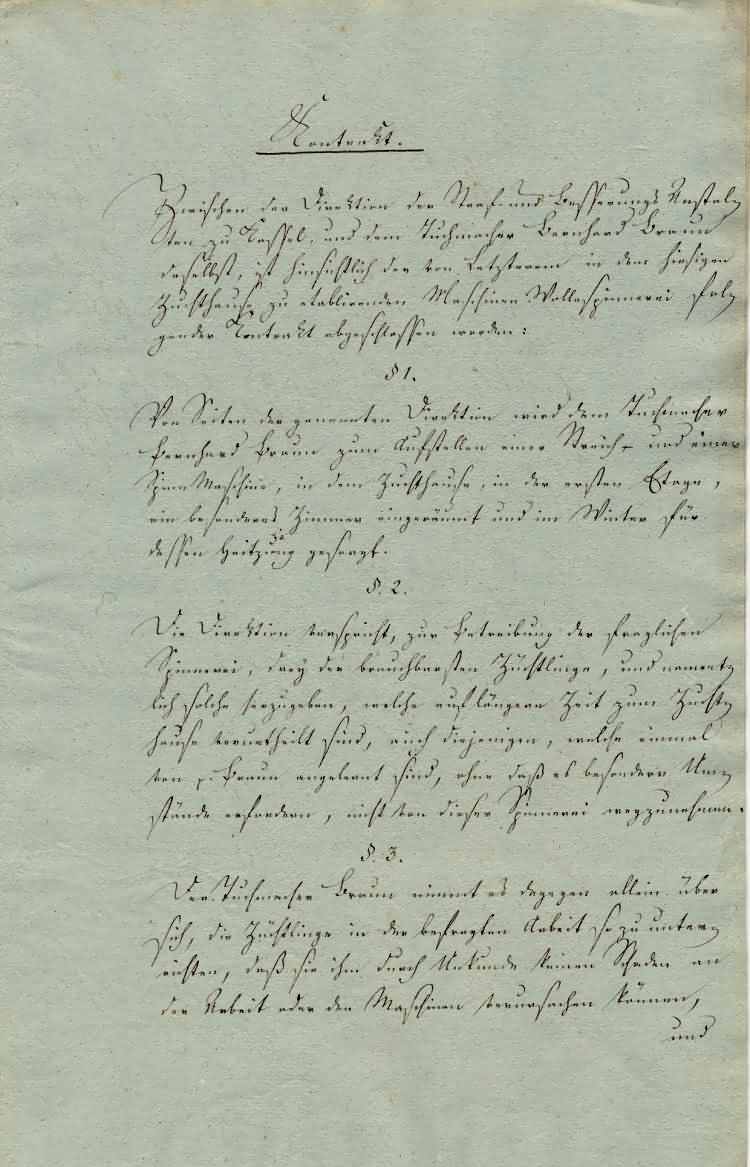 Kontrakt.
Zwischen der Direktion der Straf- und Besserungs Anstal-
ten zu Kassel, und dem Tuchmacher Bernhard Braun
daselbst, ist hinsichtlich der von Letzterem in dem hiesigen
Zuchthause zu etablirenden Maschinen Wollespinnerei fol-
gender Kontrakt abgeschlossen worden:
§ 1.
Von Seiten der genannten Direktion wird dem Tuchmacher
Bernhard Braun zum Aufstellen einer Streich- und einer
Spinn Maschine, in dem Zuchthause, in der ersten Etage,
ein besonderes Zimmer eingeräumt und im Winter für
dessen Heitzung gesorgt.
§. 2.
Die Direktion verspricht, zur Betreibung der fraglichen
Spinnerei, drey der brauchbarsten Züchtlinge, und nament-
lich solche herzugeben, welche auf längere Zeit zum Zucht-
hause verurtheilt sind, auch diejenigen, welche einmal
von p. Braun angelernt sind, ohne daß es besondere Um-
stände erfordern, nicht von dieser Spinnerei wegzunehmen.
§. 3.
Der Tuchmacher Braun nimmt es dagegen allein über
sich, die Züchtlinge in der besagten Arbeit so zu unter-
richten, daß sie ihm durch Unkunde keinen Schaden an
der Arbeit oder den Maschinen verursachen können,
und